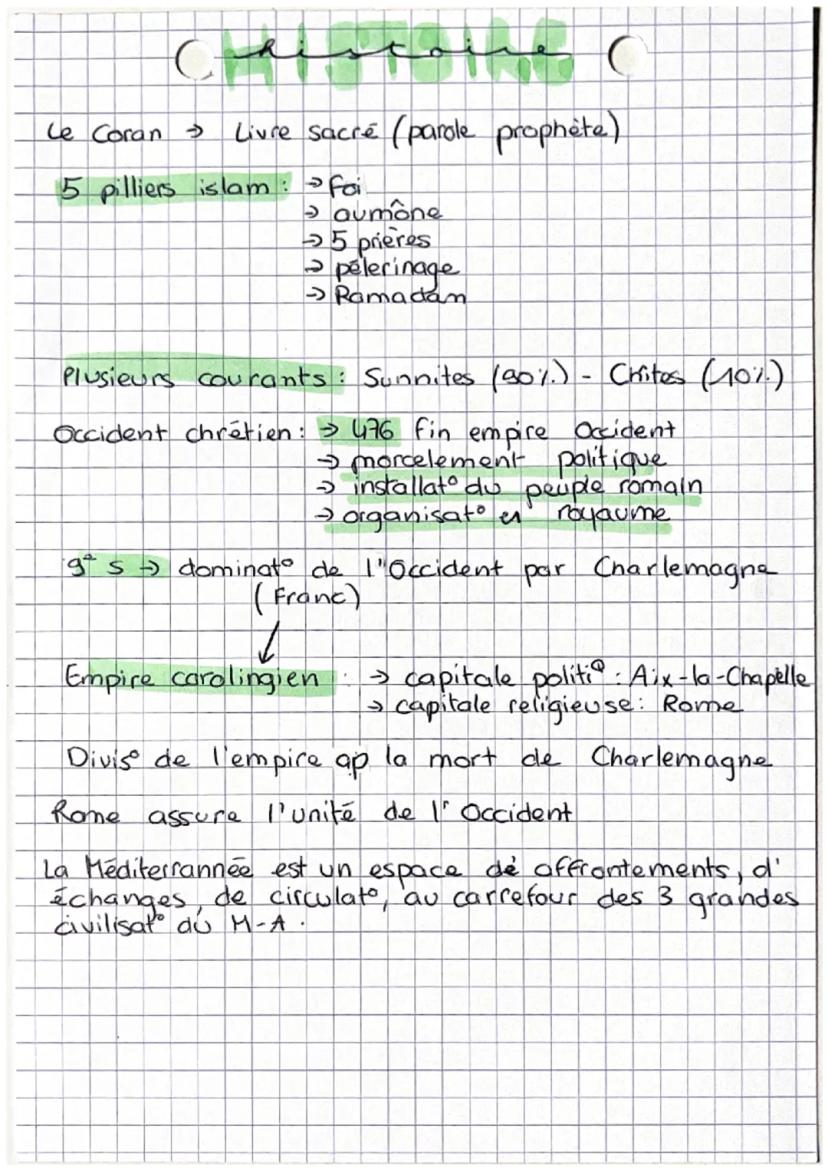 HISTOIRE
histoire
Le Coran → Livre sacré (parole prophète)
5 pilliers islam : → foi
→ aumône
→ 5 prières
→ pélerinage
→ Ramadan
Plusieurs courants : Sunnites (90%) - Chiites (10%)
Occident chrétien : → 476 fin empire Occident
→ morcelement politique
→ installat° du peuple romain
→ organisat° en royaume
9e s → dominat° de l'Occident par Charlemagne
(Franc)
Empire carolingien : → capitale politiq : Aix-la-Chapelle
→ capitale religieuse : Rome
Divis° de l'empire ap la mort de Charlemagne
Rome assure l'unité de l'Occident
La Méditerrannée est un espace de affrontements, d'
échanges, de circulat°, au carrefour des 3 grandes
civilisat° du M-A.